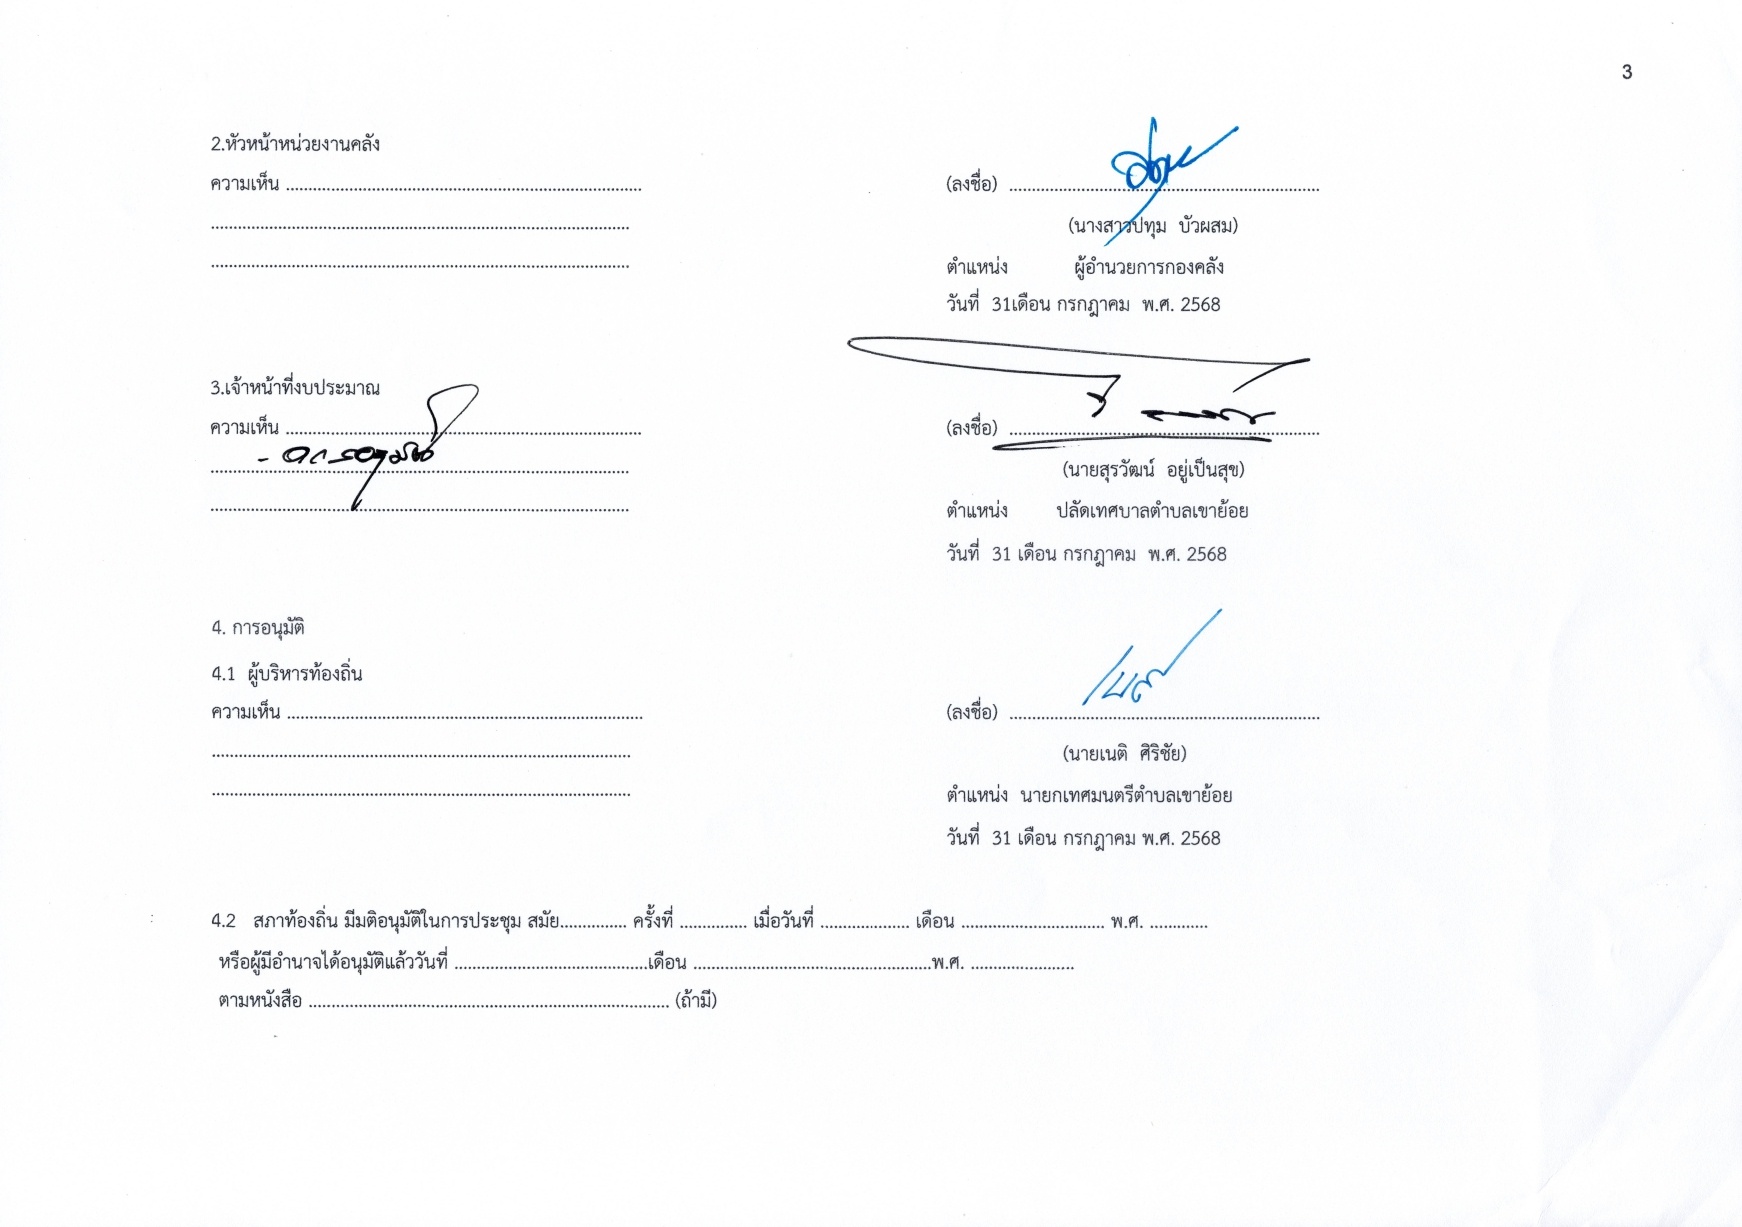 3
2.หัวหน้าหน่วยงานคลัง
ความเห็น ................................................................................
(ลงชื่อ) ......................................................................
(นางสาวปทุม บัวผสม)
ตำแหน่ง ผู้อำนวยการกองคลัง
วันที่ 31เดือน กรกฎาคม พ.ศ. 2568
3.เจ้าหน้าที่งบประมาณ
ความเห็น ................................................................................
- ควรอนุมัติ
(ลงชื่อ) ......................................................................
(นายสุรวัฒน์ อยู่เป็นสุข)
ตำแหน่ง ปลัดเทศบาลตำบลเขาย้อย
วันที่ 31 เดือน กรกฎาคม พ.ศ. 2568
4. การอนุมัติ
4.1 ผู้บริหารท้องถิ่น
ความเห็น ................................................................................
(ลงชื่อ) ......................................................................
(นายเนติ ศิริชัย)
ตำแหน่ง นายกเทศมนตรีตำบลเขาย้อย
วันที่ 31 เดือน กรกฎาคม พ.ศ. 2568
4.2 สภาท้องถิ่น มีมติอนุมัติในการประชุม สมัย............... ครั้งที่ ............... เมื่อวันที่ .................... เดือน ................................ พ.ศ. .............
หรือผู้มีอำนาจได้อนุมัติแล้ววันที่ ...........................................เดือน .....................................................พ.ศ. .......................
ตามหนังสือ ................................................................................ (ถ้ามี)